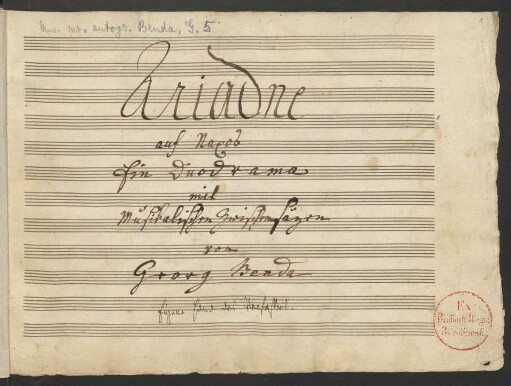 Mus. ms. autogr. Benda, G. 5
Ariadne
auf Naxos
Ein Duodrama
mit
Musikalischen Zwischensäzen
von
Georg Benda
Eigene Hand des Verfassers.
Ex
Biblioth. Regia
Berolinensi.